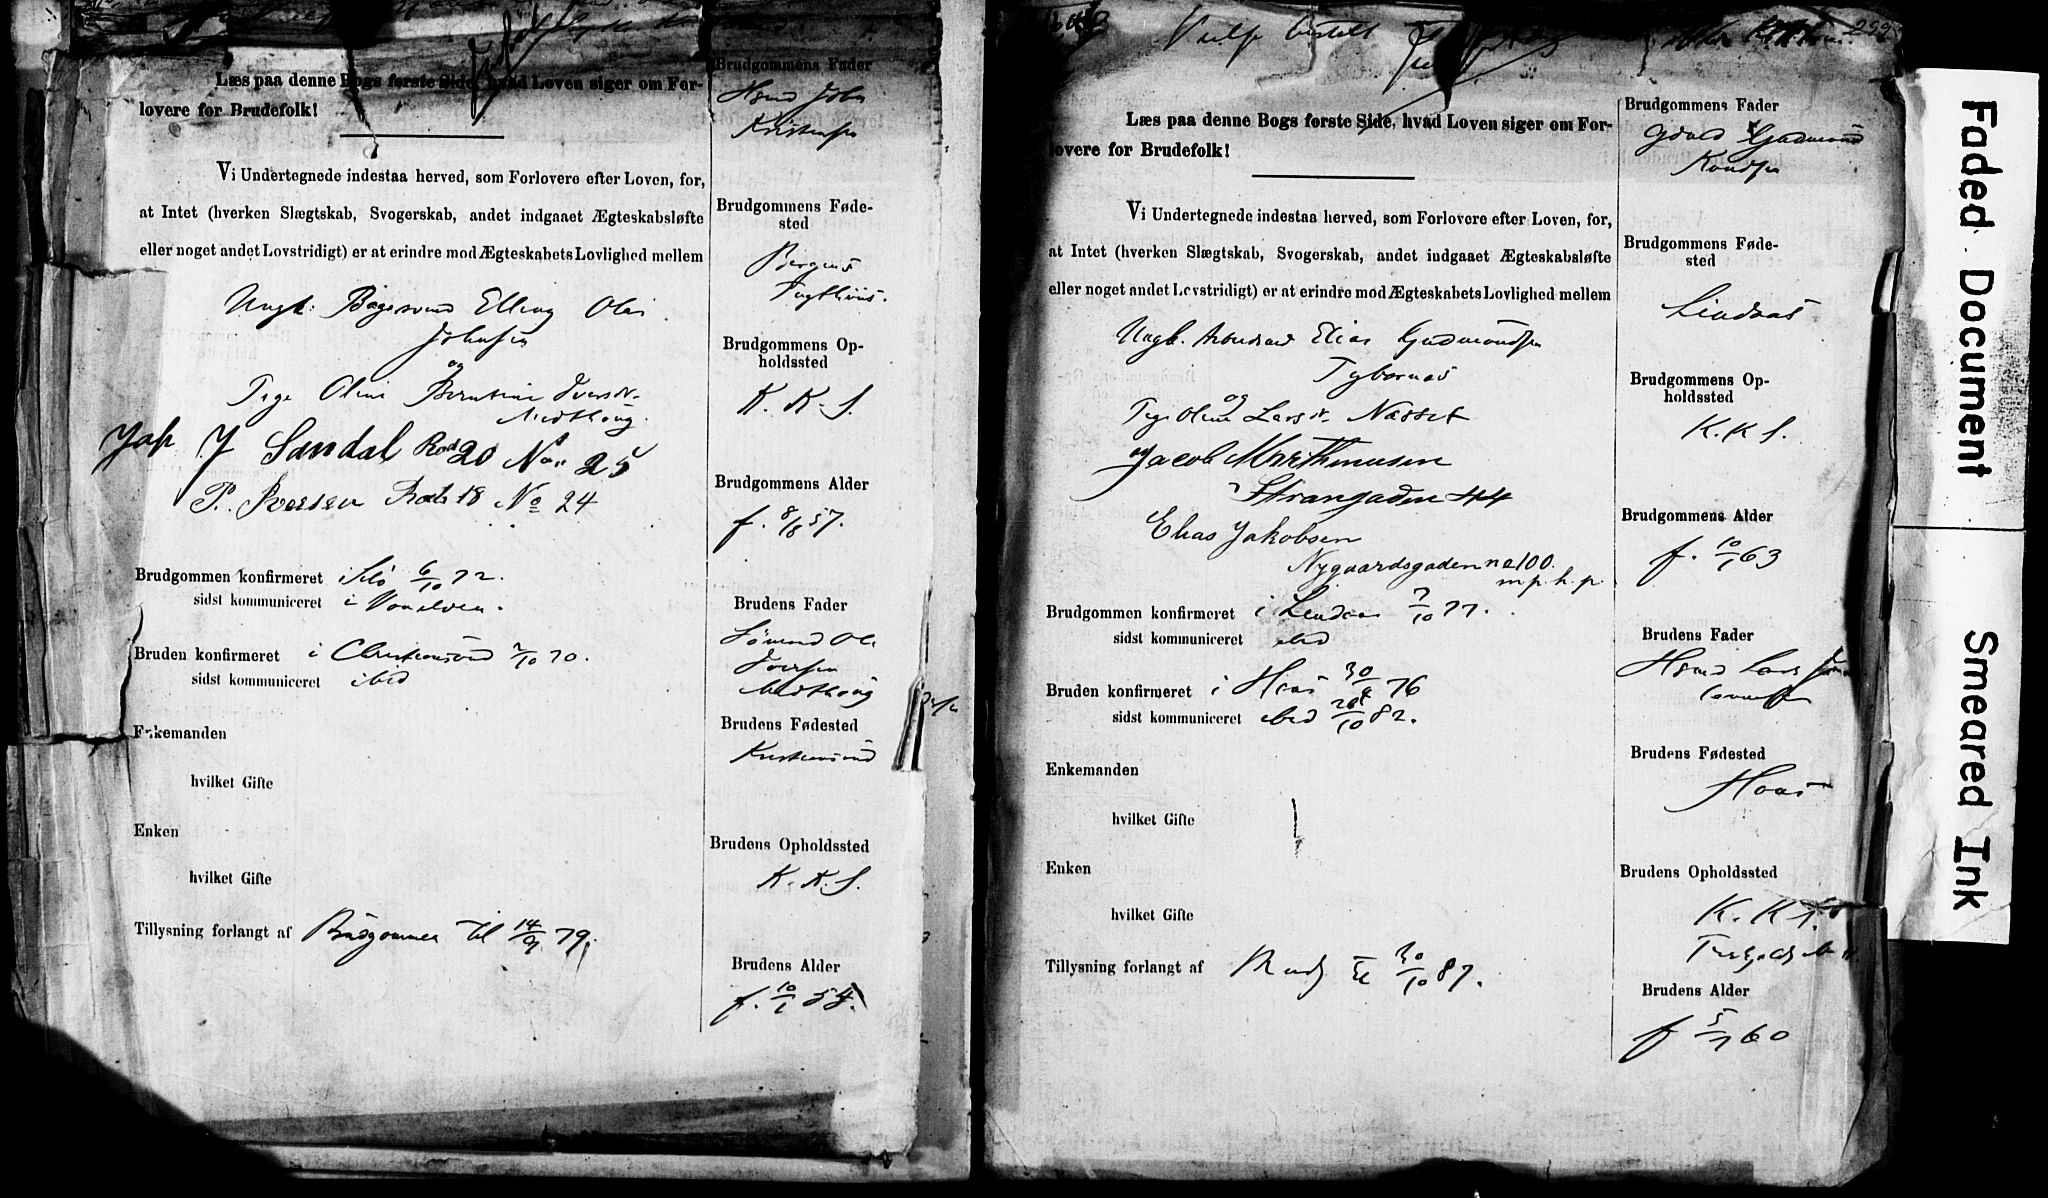 Læs paa denne Bogs første Side, hvad Loven siger om For-
lovere for Brudefolk!
Vi Undertegnede indestaa herved, som Forlovere efter Loven, for,
at Intet (hverken Slægtskab, Svogerskab, andet indgaaet Ægteskabsløfte
eller noget andet Lovstridigt) er at erindre mod Ægteskabets Lovlighed mellem
Ungk. Bøgesvend Elling Olai
Johnsen
og
Pige Oline Berntine Iversdr.
J Sandal Rode 20 No. 25
P. Iversen Rode 18 No 24
Brudgommen konfirmeret i 6/10 72.
sidst kommuniceret i
Bruden konfirmeret i Christiansund 2/10 70.
sidst kommuniceret ibid
Enkemanden
hvilket Gifte
Enken
hvilket Gifte
Tillysning forlangt af Brudgommen til 14/9 79.
Brudgommens Fader
Hsmd John
Kristensen
Brudgommens Føde-
sted
Bergens
Tugthus.
Brudgommens Op-
holdssted
K. K. S.
Brudgommens Alder
f. 8/8 57.
Brudens Fader
Ole
Iversen
Brudens Fødested
Kristiansund
Brudens Opholdssted
K. K. S.
Brudens Alder
f. 10/1 54.
299
Læs paa denne Bogs første Side, hvad Loven siger om For-
lovere for Brudefolk!
Vi Undertegnede indestaa herved, som Forlovere efter Loven, for,
at Intet (hverken Slægtskab, Svogerskab, andet indgaaet Ægteskabsløfte
eller noget andet Lovstridigt) er at erindre mod Ægteskabets Lovlighed mellem
Ungk. Arbeidsmd Elias Gudmundsen
Tybernes
og
Pige Oline Larsdr. Næsset
Jacob Marthinusen
Strangaden 44
Elias Jakobsen
Nygaardsgaden no 100.
m. p. h. p.
Brudgommen konfirmeret i Lindaas 7/10 77.
sidst kommuniceret ibid
Bruden konfirmeret i Hous 30/4 76
sidst kommuniceret ibid 26/10 82.
Enkemanden
hvilket Gifte
Enken
hvilket Gifte
Tillysning forlangt af Brudg til 30/10 87.
Brudgommens Fader
Gdmd Gudmund
Knudsen
Brudgommens Føde-
sted
Lindaas
Brudgommens Op-
holdssted
K. K. S.
Brudgommens Alder
f. 10/1 63
Brudens Fader
Hsmd Lars
Brudens Fødested
Hous
Brudens Opholdssted
K. K. S.
Brudens Alder
f 5/7 60
Faded Document
Smeared Ink